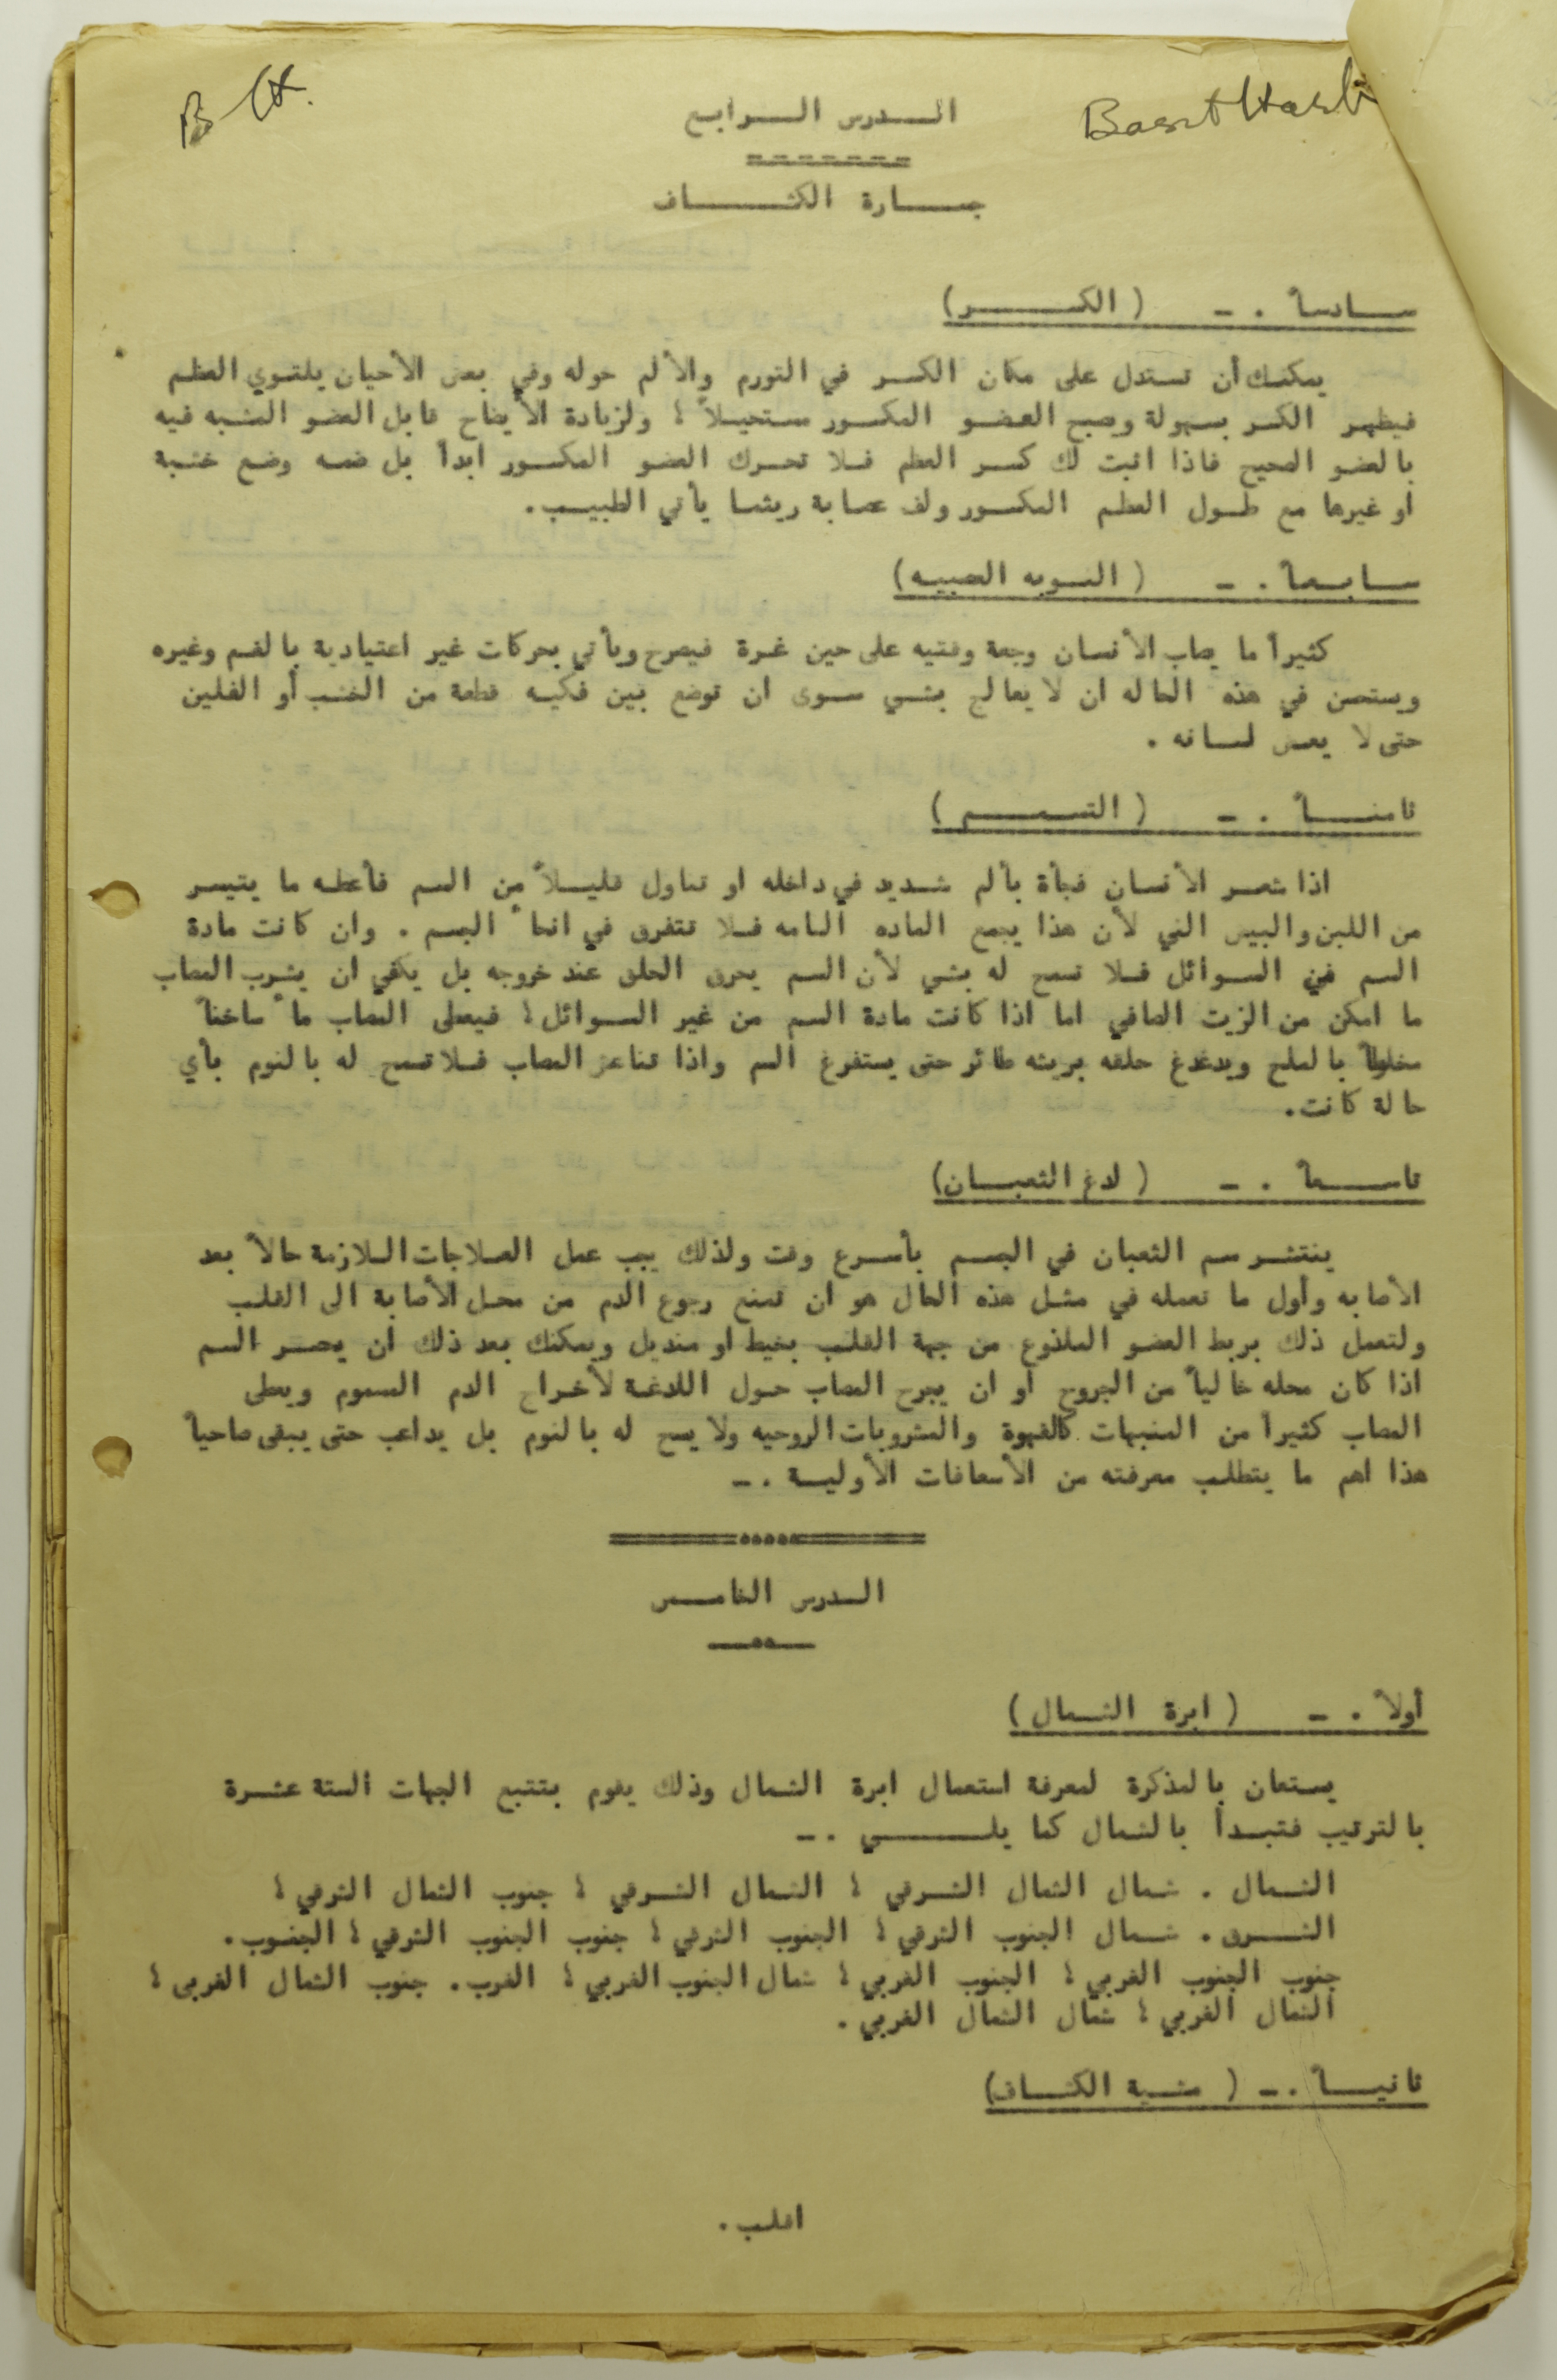 B H.
الدرس الرابع
Baset Hasb
جارة الكشاف
سادساً . - ( الكسر )
يمكنك أن تستدل على مكان الكسر في التورم والألم حوله وفي بعض الأحيان يلتوي العظم
فيظهر الكسر بسهولة وصبح العضو المكسور مستحيلاً ؛ ولزيادة الأيضاح قابل العضو المشبه فيه
بالعضو الصحيح فاذا اثبت لك كسر العظم فلا تحرك العضو المكسور ابداً بل ضمه وضع خشبة
او غيرها مع طول العظم المكسور ولف عصابة ريثما يأتي الطبيب .
سابعاً . - ( النوبه العصبيه )
كثيراً ما يصاب الأنسان وجعة وقتيه على حين غرة فيصرح ويأتي بحركات غير اعتيادية بالفم وغيره
ويستحسن في هذه الحاله ان لا يعالج بشي سوى ان توضع بين فكيه قطعة من الخشب أو الفلين
حتى لا يعض لسانه .
ثامناً . - ( التسمم )
اذا شعر الأنسان فجأة بألم شديد في داخله او تناول قليلاً من السم فأعطه ما يتيسر
من اللبن والبيض الني لأن هذا يجمع الماده السامه فلا تتفرق في انحاً الجسم . وان كانت مادة
السم من السوائل فلا تسمح له بشي لأن السم يحرق الحلق عند خروجه بل يكفي ان يشرب المصاب
ما امكن من الزيت الصافي اما اذا كانت مادة السم من غير السوائل ؛ فيعطى المصاب ماً ساخناً
مخلوطاً بالملح ويدغدغ حلقه بريشه طائر حتى يستفرغ السم واذا تناعز المصاب فلا تسمح له بالنوم بأي
حالة كانت .
تاسعاً . - ( لدغ الثعبان )
ينتشر سم الثعبان في الجسم بأسرع وقت ولذلك يجب عمل العلاجات اللازمة حالاً بعد
الأصابه وأول ما تعمله في مثل هذه الحال هو ان تمنع رجوع الدم من محل الأصابة الى القلب
ولتعمل ذلك بربط العضو الملذوع من جهة القلب بخيط او منديل ويمكنك بعد ذلك ان يعصر السم
اذا كان محله خالياً من الجروح او ان يجرح المصاب حول اللادغة لأخراج الدم المسموم ويعطى
المصاب كثيراً من المنبهات كالقهوة والمشروبات الروحيه ولا يسمح له بالنوم بل يداعب حتى يبقى صاحياً
هذا اهم ما يتطلب معرفته من الأسعافات الأولية . -
الدرس الخامس
أولاً . - ( ابرة الشمال )
يستعان بالمذكرة لمعرفة استعمال ابرة الشمال وذلك يقوم بتتبع الجهات الستة عشرة
بالترتيب فتبدأ بالشمال كما يلي . -
الشمال . شمال الشمال الشرقي ؛ الشمال الشرقي ؛ جنوب الشمال الشرقي ؛
الشرق . شمال الجنوب الشرقي ؛ الجنوب الشرقي ؛ جنوب الجنوب الشرقي ؛ الجنوب .
جنوب الجنوب الغربي ؛ الجنوب الغربي ؛ شمال الجنوب الغربي ؛ الغرب . جنوب الشمال الغربى ؛
الشمال الغربي ؛ شمال الشمال الغربي .
ثانياً . - ( مشية الكشاف )
اقلب .